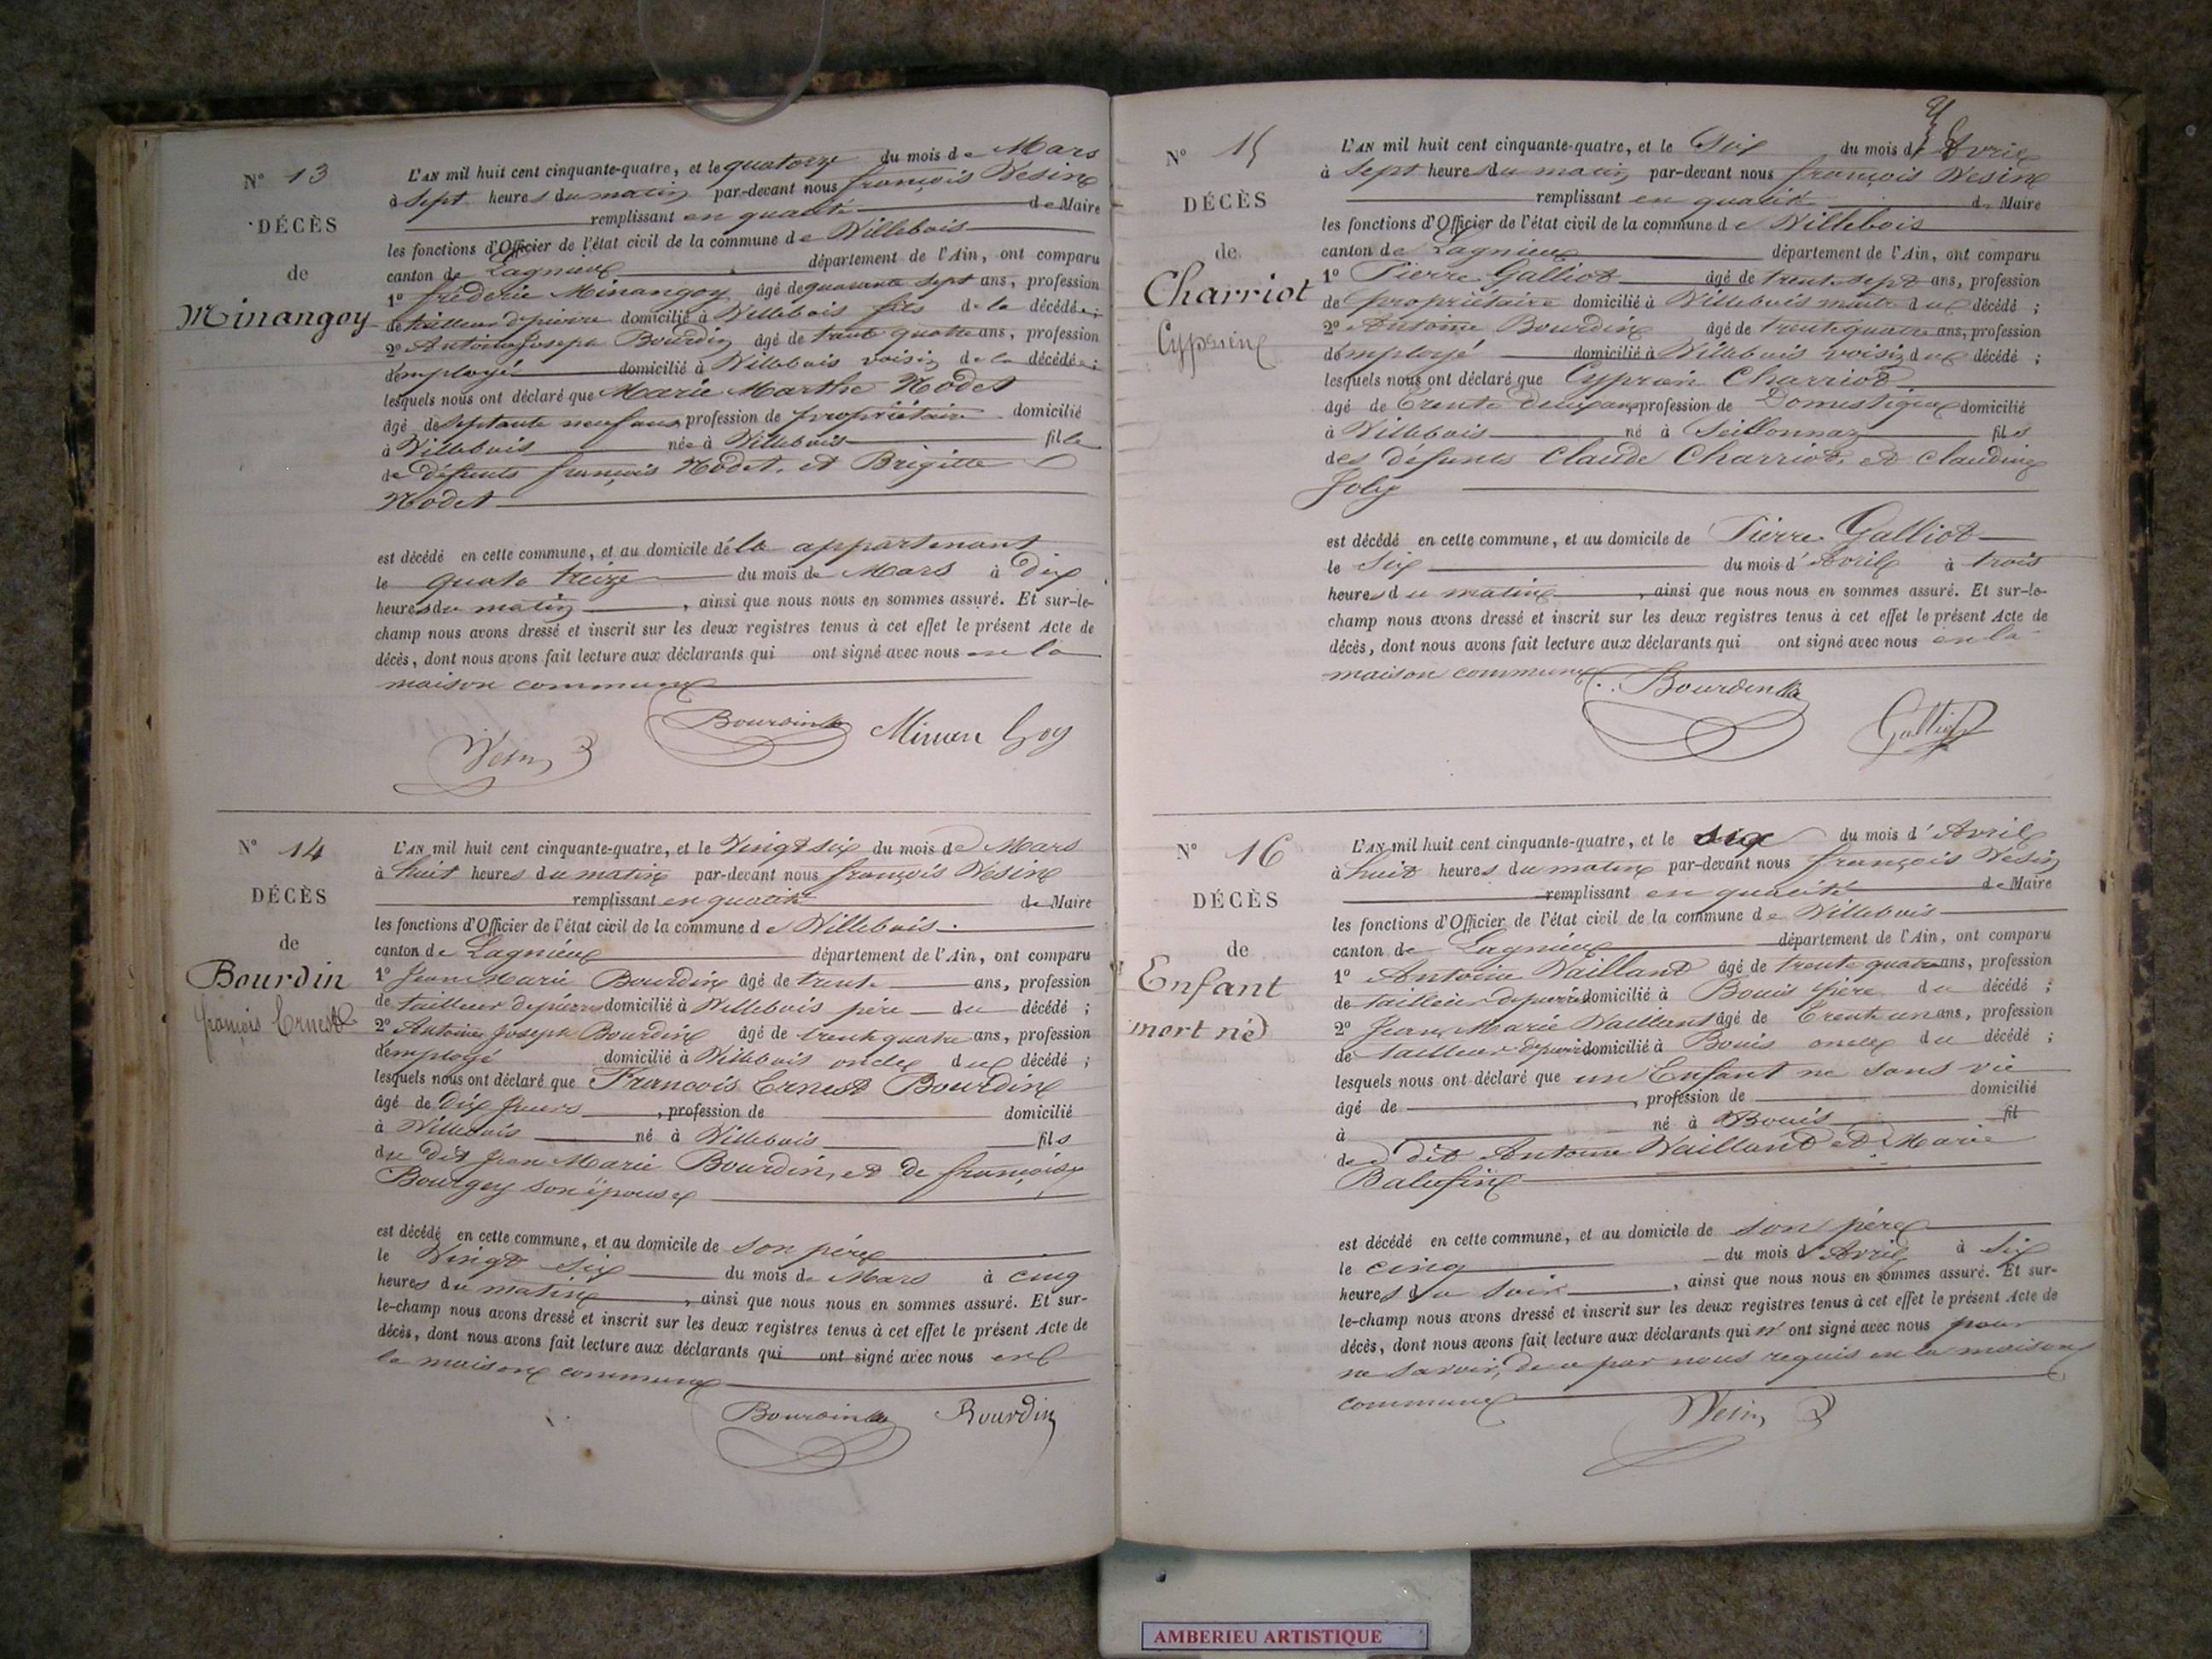 N° 13
DÉCÈS
de
Minangoy
L'AN mil huit cent cinquante-quatre, et le quatorze du mois de Mars
à Sept heures du matin par-devant nous françois Vesin
remplissant en qualité de Maire
les fonctions d'Officier de l'état civil de la commune de Villebois
canton de Lagnieu département de l'Ain, ont comparu
1° frédéric Minangoy âgé de quarante sept ans, profession
de tailleur de pierre domicilié à Villebois fils de la décédée;
2° Antoine Joseph Bourdin âgé de trente quatre ans, profession
d'employé domicilié à Villebois voisin de la décédée;
lesquels nous ont déclaré que Marie Marthe Nodet
âgé de Septante neuf ans, profession de propriétaire domicilié
à Villebois née à Villebois fille
de défunts françois Nodet, et Brigitte
Nodet
est décédé en cette commune, et au domicile de la appartenant
le treize du mois de Mars à dix
heures du matin, ainsi que nous nous en sommes assuré. Et sur-le-
champ nous avons dressé et inscrit sur les deux registres tenus à cet effet le présent Acte de
décès, dont nous avons fait lecture aux déclarants qui ont signé avec nous en la
maison commune
Vesin Bourdin Minan Goy
N° 14
DÉCÈS
de
Bourdin
françois Ernest
L'AN mil huit cent cinquante-quatre, et le Vingt six du mois de Mars
à huit heures du matin par-devant nous françois Vesin
remplissant en qualité de Maire
les fonctions d'Officier de l'état civil de la commune de Villebois.
canton de Lagnieu département de l'Ain, ont comparu
1° Jean Marie Bourdin âgé de trente ans, profession
de tailleur de pierre domicilié à Villebois père du décédé;
2° Antoine Joseph Bourdin âgé de trente quatre ans, profession
d'employé domicilié à Villebois oncle du décédé;
lesquels nous ont déclaré que François Ernest Bourdin
âgé de dix jours, profession de domicilié
à Villebois né à Villebois fils
du dit Jean Marie Bourdin, et de françoise
Bourgey son épouse
est décédé en cette commune, et au domicile de son père
le Vingt six du mois de Mars à cinq
heures du matin, ainsi que nous nous en sommes assuré. Et sur-
le-champ nous avons dressé et inscrit sur les deux registres tenus à cet effet le présent Acte de
décès, dont nous avons fait lecture aux déclarants qui ont signé avec nous en
la maison commune
Bourdin Bourdin
N° 15
DÉCÈS
de
Charriot
Cyprien
L'AN mil huit cent cinquante-quatre, et le Six du mois d'Avril
à Sept heures du matin par-devant nous françois Vesin
remplissant en qualité de Maire
les fonctions d'Officier de l'état civil de la commune de Villebois
canton de Lagnieu département de l'Ain, ont comparu
1° Pierre Galliot âgé de trente sept ans, profession
de propriétaire domicilié à Villebois du décédé;
2° Antoine Bourdin âgé de trente quatre ans, profession
d'employé domicilié à Villebois voisin du décédé;
lesquels nous ont déclaré que Cyprien Charriot
âgé de Trente deux ans profession de Domestique domicilié
à Villebois né à Seillonnaz fils
des défunts Claude Charriot, et Claudine
Joly
est décédé en cette commune, et au domicile de Pierre Galliot
le Six du mois d'Avril à trois
heures du matin, ainsi que nous nous en sommes assuré. Et sur-le-
champ nous avons dressé et inscrit sur les deux registres tenus à cet effet le présent Acte de
décès, dont nous avons fait lecture aux déclarants qui ont signé avec nous en la
maison commune
Bourdin Galliot
N° 16
DÉCÈS
de
Enfant
mort né
L'AN mil huit cent cinquante-quatre, et le six du mois d'Avril
à huit heures du matin par-devant nous françois Vesin
remplissant en qualité de Maire
les fonctions d'Officier de l'état civil de la commune de Villebois
canton de Lagnieu département de l'Ain, ont comparu
1° Antoine Vaillant âgé de trente quatre ans, profession
de tailleur de pierre domicilié à Bouis père du décédé;
2° Jean Marie Vaillant âgé de Trente un ans, profession
de tailleur de pierre domicilié à Bouis oncle du décédé;
lesquels nous ont déclaré que un Enfant né sans vie
âgé de, profession de domicilié
à né à Bouis fil
de dit Antoine Vaillant et Marie
Balufin
est décédé en cette commune, et au domicile de son père
le cinq du mois d'Avril à Six
heures du soir, ainsi que nous nous en sommes assuré. Et sur-
le-champ nous avons dressé et inscrit sur les deux registres tenus à cet effet le présent Acte de
décès, dont nous avons fait lecture aux déclarants qui n'ont signé avec nous pour
ne savoir, de ce par nous requis en la maison
commune
Vesin
AMBERIEU ARTISTIQUE